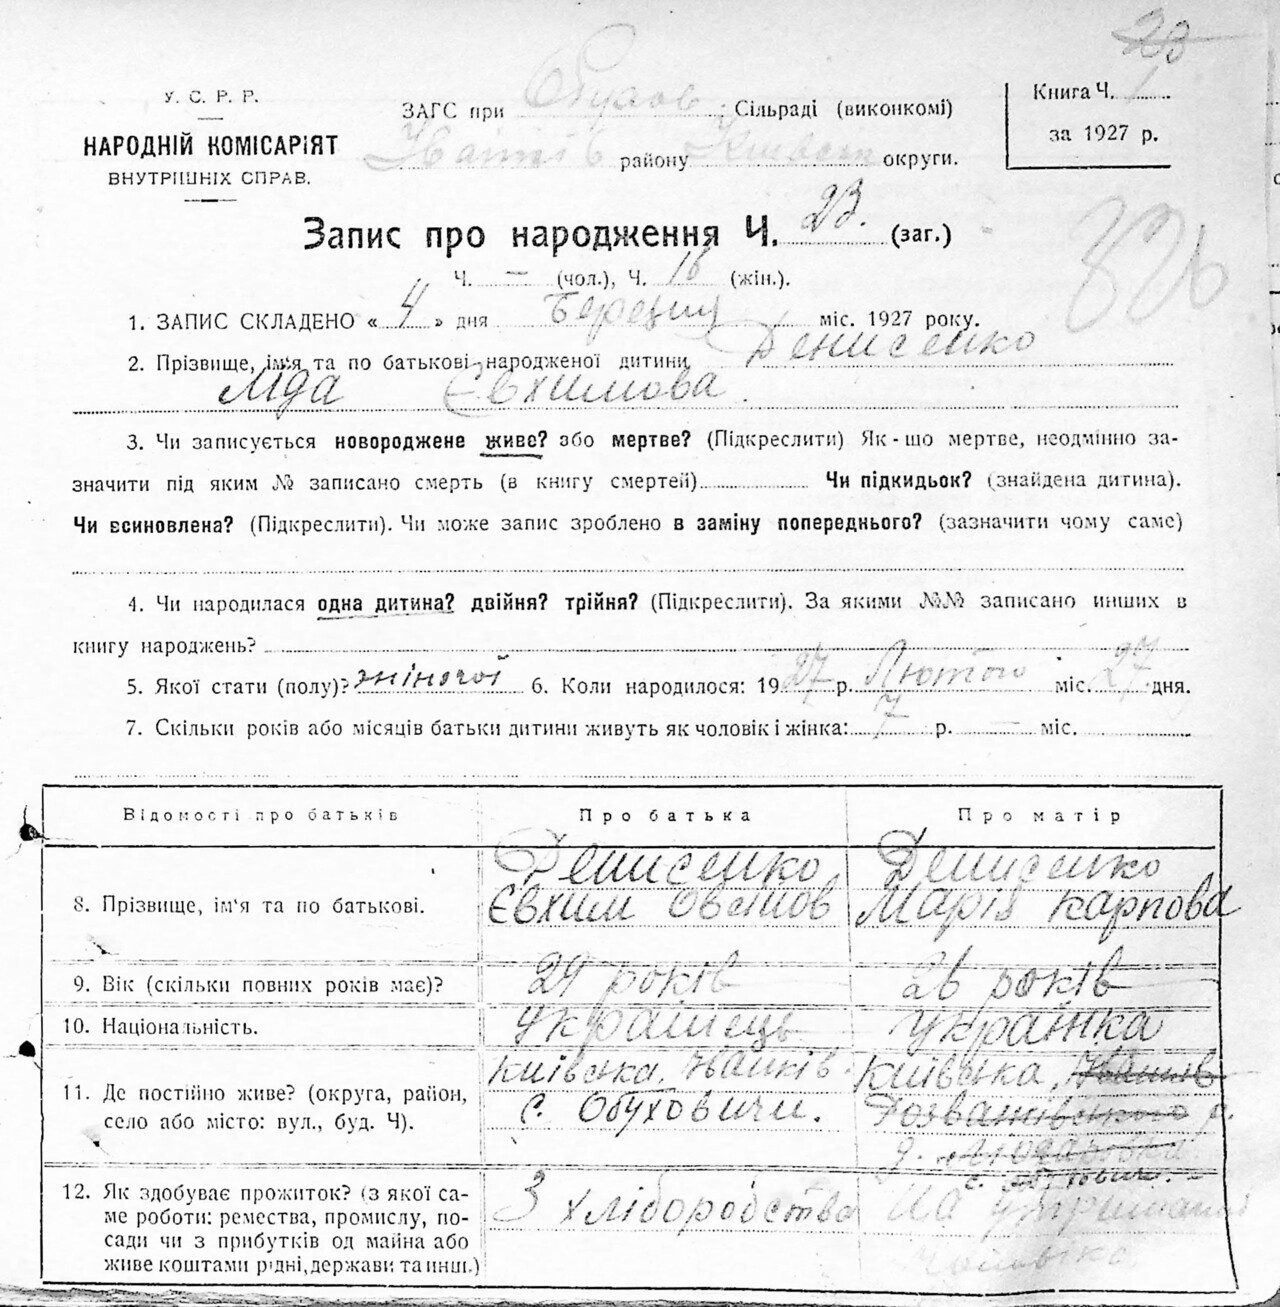 23
У. С. Р. Р.
НАРОДНІЙ КОМІСАРІЯТ
ВНУТРІШНІХ СПРАВ.
ЗАГС при Обухов Сільраді (виконкомі)
району округи.
Книга Ч. 1
за 1927 р.
Запис про народження Ч. 23. (заг.)
Ч. — (чол.), Ч. 16 (жін.).
826
1. ЗАПИС СКЛАДЕНО « 4 » дня Березня міс. 1927 року.
2. Прізвище, ім'я та по батькові народженої дитини Денисенко
Яда Євхимова.
3. Чи записується новороджене живе? або мертве? (Підкреслити) Як-що мертве, неодмінно за-
значити під яким № записано смерть (в книгу смертей) Чи підкидьок? (знайдена дитина).
Чи всиновлена? (Підкреслити). Чи може запис зроблено в заміну попереднього? (зазначити чому саме)
4. Чи народилася одна дитина? двійня? трійня? (Підкреслити). За якими №№ записано инших в
книгу народжень?
5. Якої стати (полу)? жіночої 6. Коли народилося: 1927 р. Лютого міс. 27 дня.
7. Скільки років або місяців батьки дитини живуть як чоловік і жінка: 7 р. — міс.
Відомості про батьків Про батька Про матір
8. Прізвище, ім'я та по батькові. Денисенко Євхим Овсійов Денисенко Марія Карпова
9. Вік (скільки повних років має)? 29 років 26 років
10. Національність. Українець Українка
11. Де постійно живе? (округа, район,
село або місто: вул., буд. Ч). Київська, Іванків. с. Обуховичи. Київська, Іванків Розважівського р.
12. Як здобуває прожиток? (з якої са-
ме роботи: ремества, промислу, по-
сади чи з прибутків од майна або
живе коштами рідні, держави та инш.) З хліборобства На утриманні